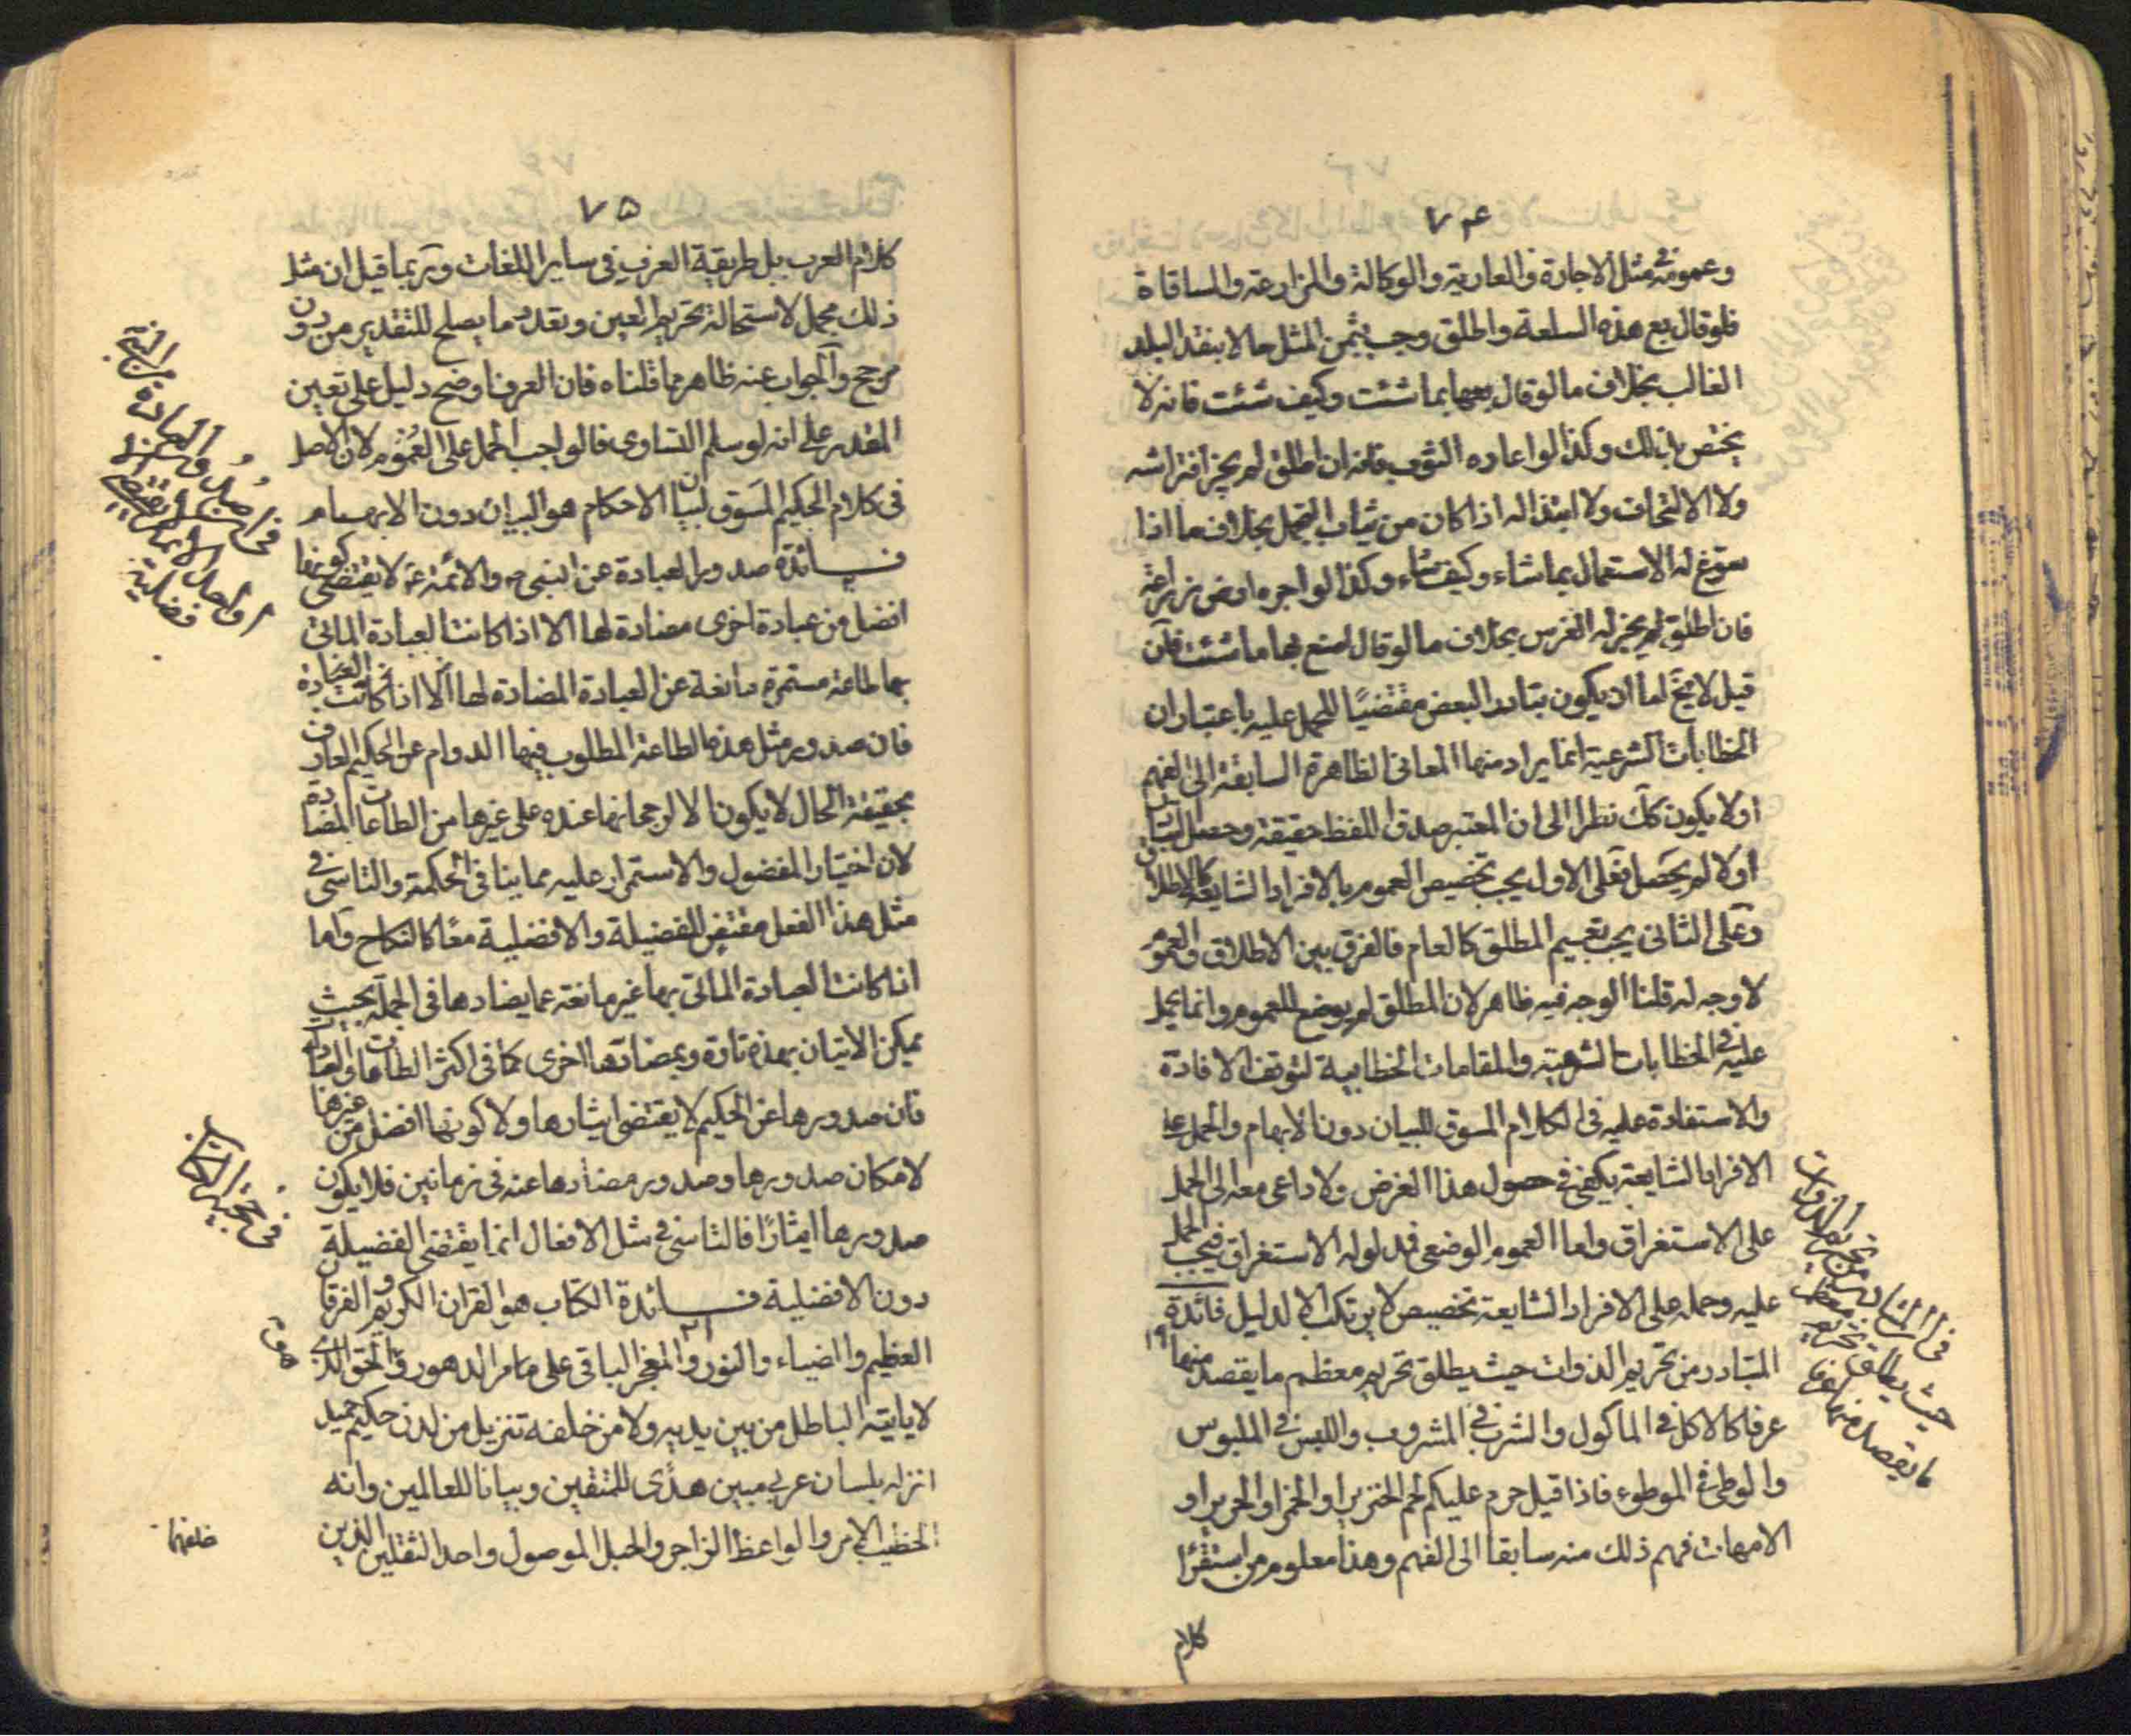 ٧۴
وعمومه فى مثل الاجارة والعارية والوكالة والمزارعة والمساقاة
فلو قال بع هذه السلعة واطلق وجب بثمن المثل حالا بنقد البلد
الغالب بخلاف ما لو قال بعها بما شئت وكيف شئت فانه لا
يختص بذلك وكذا لو اعاره الثوب فانه ان اطلق لم يجز افتراشه
ولا الالتحاف ولا ابتذاله اذا كان من ثياب التجمل بخلاف ما اذا
سوّغ له الاستعمال بما شاء وكيف شاء وكذا لو اجره ارض زراعة
فان اطلق لم يجز له الغرس بخلاف ما لو قال اصنع بها ما شئت فان
قيل لا يخ اما ان يكون تبادر البعض مقتضيًا للحمل عليه باعتبار ان
الخطابات الشرعية انما يراد منها المعانى الظاهرة السابقة الى الفهم
اولا يكون كك نظرا الى ان المعتبر صدق اللفظ حقيقة وحصل التبادر
اولا لم يحصل فعلى الاول يجب تخصيص العموم بالافراد الشايعة كالاطلاق
وعلى الثانى يجب تعميم المطلق كالعام فالفرق بين الاطلاق والعموم
لا وجه له قلنا الوجه فيه ظاهر لان المطلق لم يوضع للعموم وانما يحمل
عليه فى الخطابات الشرعية والمقامات الخطابية لتوقف الافادة
والاستفادة عليه فى الكلام المسوق للبيان دون الابهام والحمل على
الافراد الشايعة يكفى فى حصول هذا الغرض ولا داعى معه الى الحمل
على الاستغراق واما العموم الوضعى فمدلوله الاستغراق فيجب الحمل
عليه وحمله على الافراد الشايعة تخصيص لا يرتكب الا لدليل فائدة
المتبادر من تحريم الذوات حيث يطلق تحريم معظم ما يقصد منها
عرفا كالاكل فى الماكول والشرب فى المشروب واللبس فى الملبوس
والوطى فى الموطوء فاذا قيل حرم عليكم لحم الخنزير او الخمر او الحرير او
الامهات فهم ذلك منه سابقا الى الفهم وهذا معلوم من استقرا
كلام
فى ان المتبادر من تحريم الذوات
حيث يطلق تحريم معظم
ما يقصد منها عرفا
٧۵
كلام العرب بل طريقة العرف فى ساير اللغات وربما قيل ان مثل
ذلك مجمل لاستحالة تحريم العين وتعدد ما يصلح للتقدير من دون
مرجح والجواب عنه ظاهر مما قلناه فان العرف اوضح دليل على تعيين
المقدر على انه لو سلم التساوى فالواجب الحمل على العموم لان الاصل
فى كلام الحكيم المسوق لبيان الاحكام هو البيان دون الابهام
فــائدة صدور العبادة عن النبى ص والائمة ع لا يقتضى كونها
افضل من عبادة اخرى مضادة لها الا اذا كانت العبادة الماتى
بها طاعة مستمرة مانعة عن العبادة المضادة لها الا اذا كانت العبادة
فان صدور مثل هذه الطاعة المطلوب فيها الدوام عن الحكيم العارف
بحقيقة الحال لا يكون الا لرجحانها عنده على غيرها من الطاعات المضادة
لان اختيار المفضول والاستمرار عليه مما ينافى الحكمة والتاسى فى
مثل هذا الفعل مقتض للفضيلة والافضلية معًا كالنكاح واما
اذا كانت العبادة الماتى بها غير مانعة عما يضادها فى الجملة بحيث
يمكن الاتيان بهذه تارة وبمضادتها اخرى كما فى اكثر الطاعات والعبادات
فان صدورها عن الحكيم لا يقتضى ايثارها ولا كونها افضل من غيرها
لامكان صدورها وصدور مضادها عنه فى زمانين فلا يكون
صدورها ايثارًا فالتاسى فى مثل الافعال انما يقتضى الفضيلة
دون الافضلية فــائدة الكتاب هو القران الكريم والفرقان
العظيم والضياء والنور والمعجز الباقى على مر الدهور والحق الذى
لا ياتيه الباطل من بين يديه ولا من خلفه تنزيل من لدن حكيم حميد
انزله بلسان عربى مبين هدًى للمتقين وبيانا للعالمين وانه
الخطيب الامر والواعظ الزاجر والحبل الموصول واحد الثقلين الذين
خلفهما
فى حجية الكتاب